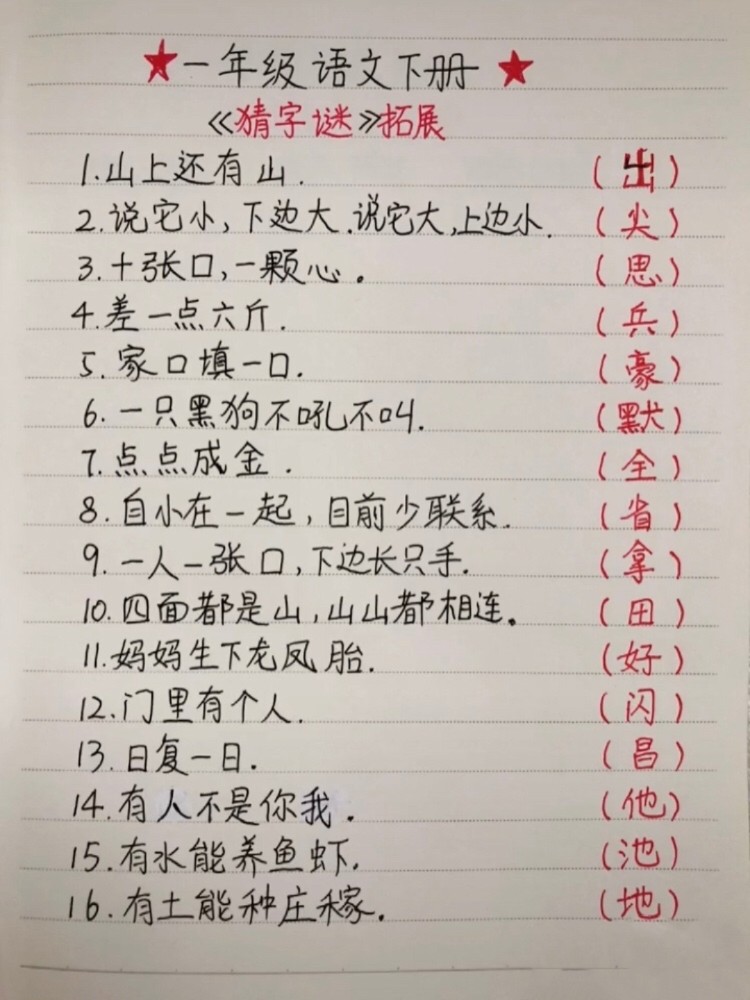 ★一年级语文下册★
《猜字谜》拓展
1.山上还有山. (出)
2.说它小,下边大.说它大,上边小. (尖)
3.十张口,一颗心。 (思)
4.差一点六斤. (兵)
5.家口填一口. (豪)
6.一只黑狗不吼不叫. (默)
7.点点成金. (全)
8.自小在一起,目前少联系. (省)
9.一人一张口,下边长只手. (拿)
10.四面都是山,山山都相连。 (田)
11.妈妈生下龙凤胎. (好)
12.门里有个人. (闪)
13.日复一日. (昌)
14.有人不是你我. (他)
15.有水能养鱼虾. (池)
16.有土能种庄稼. (地)